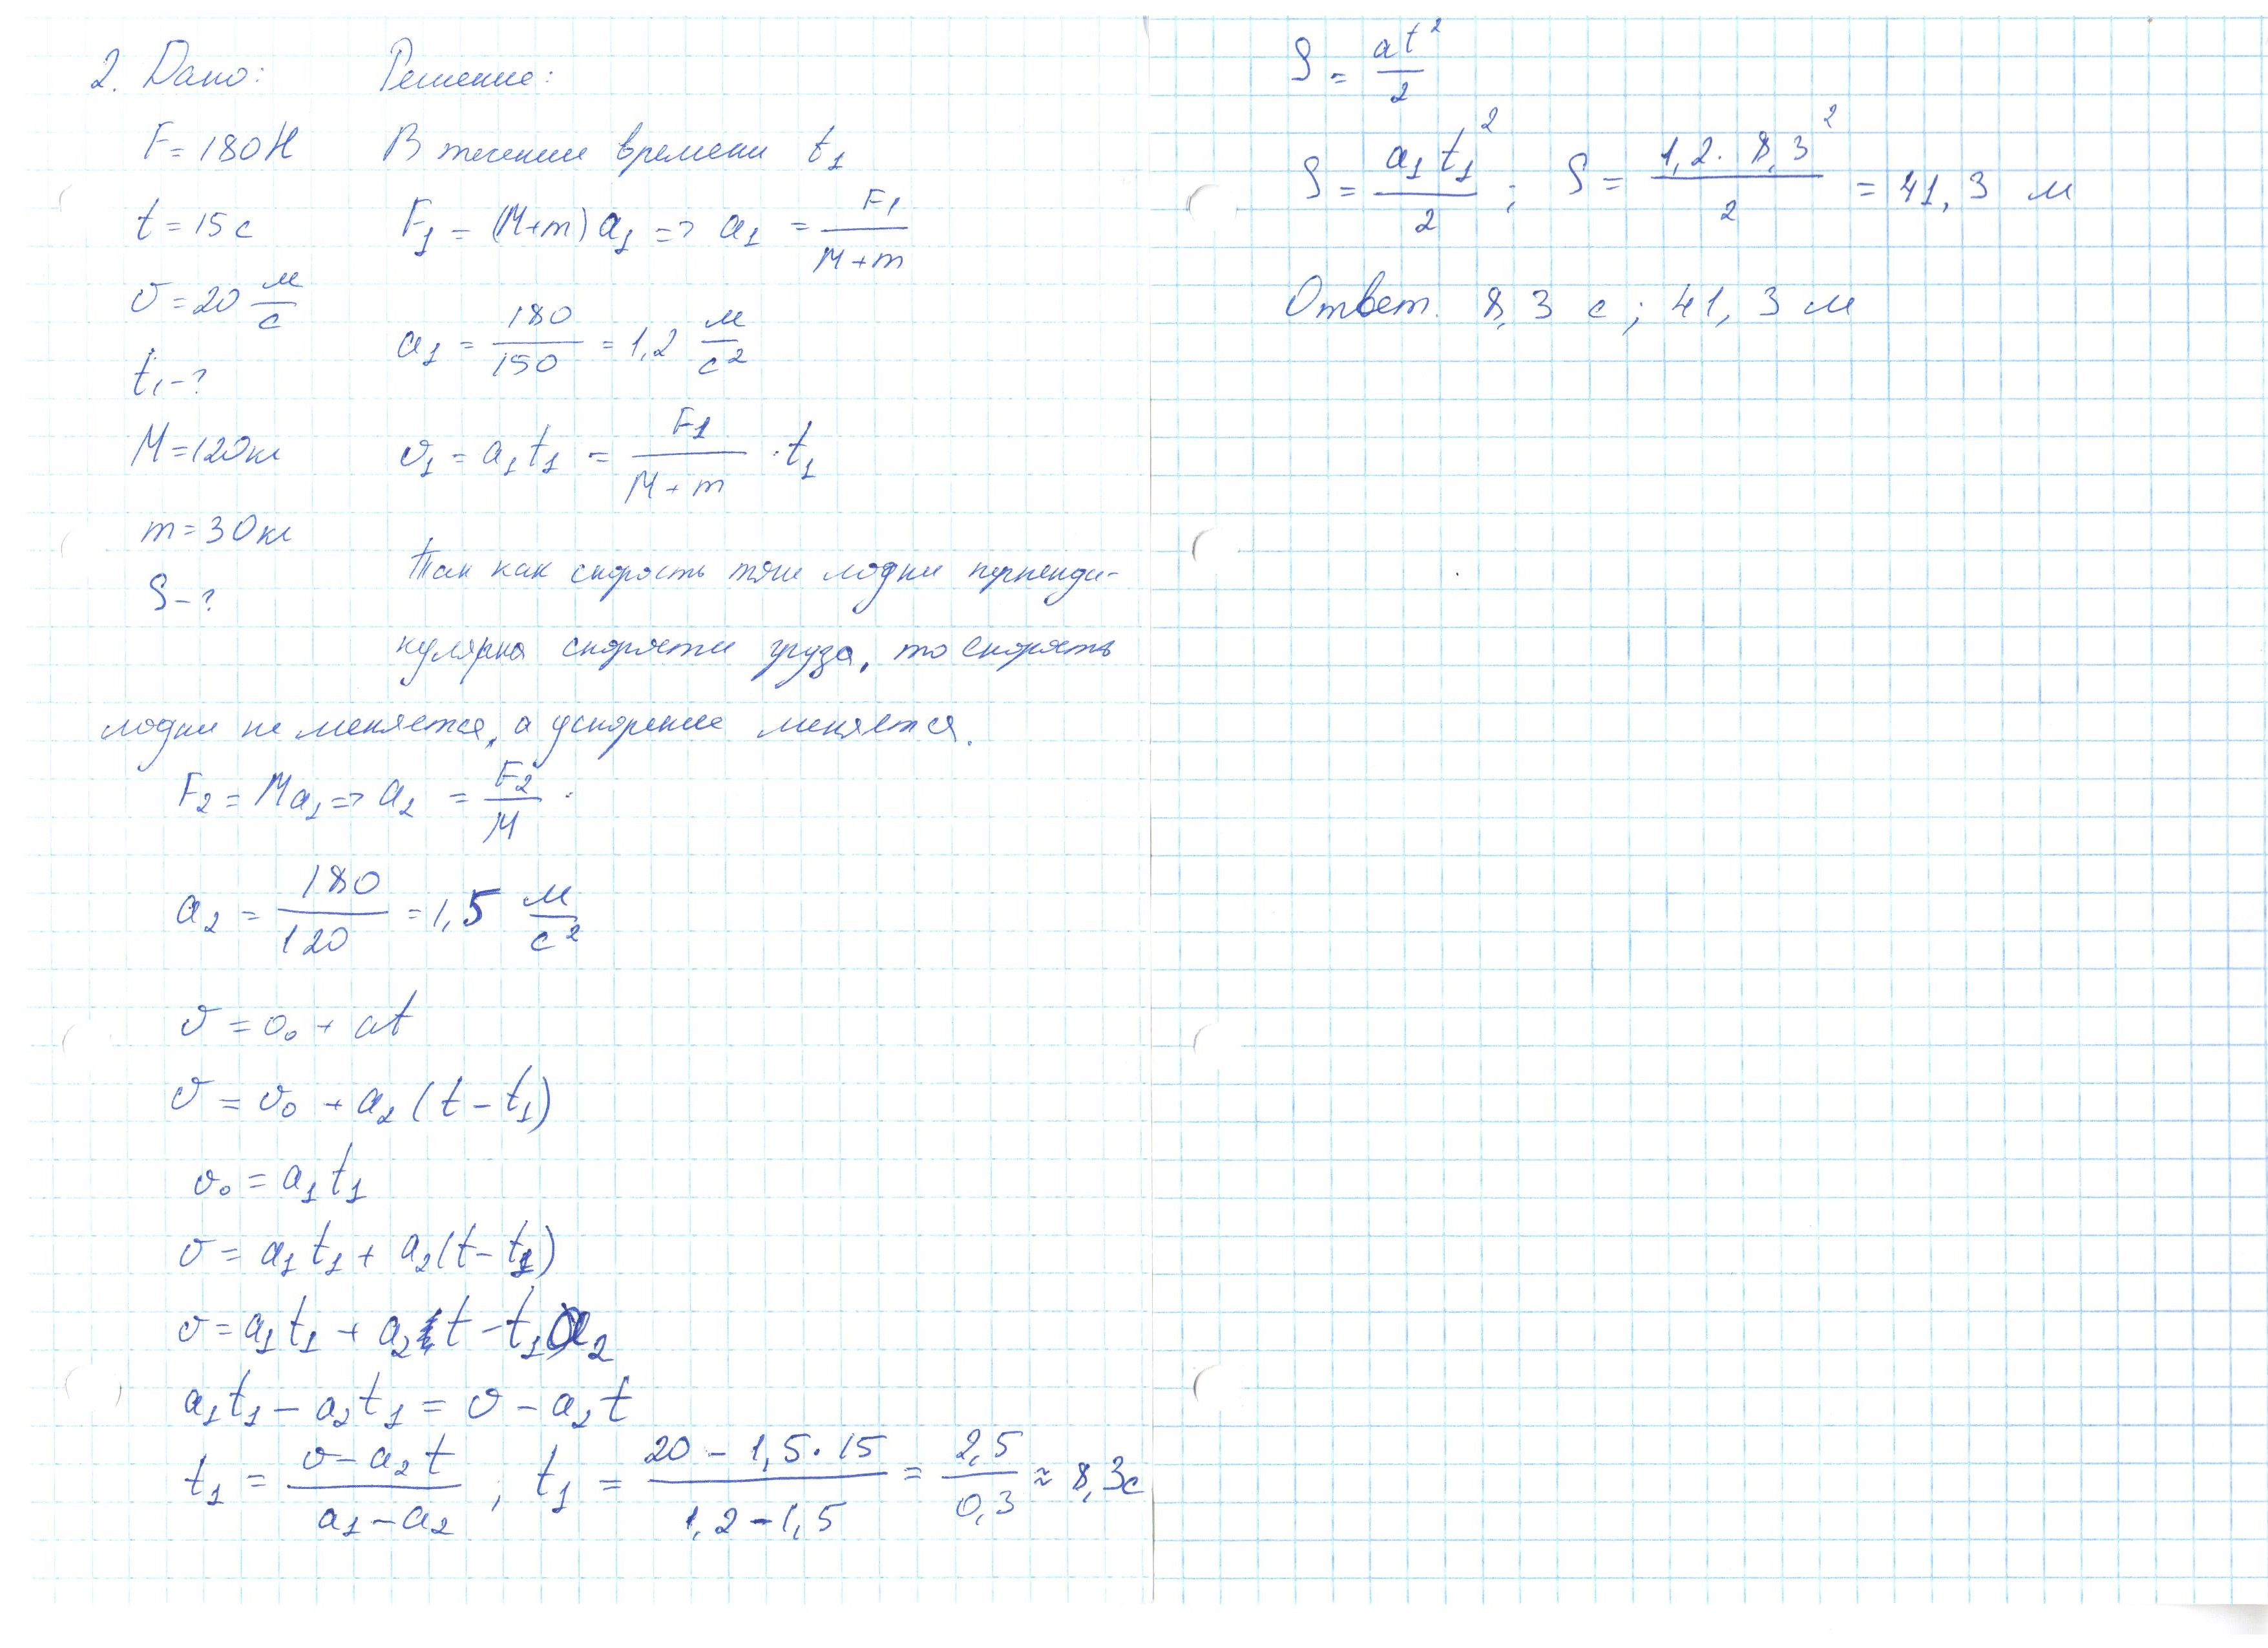 2. Дано: Решение:
F = 180 Н В течение времени t₁
t = 15 с F₁ = (M+m) a₁ => a₁ = F₁/(M+m)
υ = 20 м/с a₁ = 180/150 = 1,2 м/с²
t₁ - ?
M = 120 кг υ₁ = a₁t₁ = F₁/(M+m) · t₁
m = 30 кг
S - ? Так как скорость лодки перпенди-
кулярна скорости груза, то скорость
лодки не меняется, а ускорение меняется.
F₂ = Ma₁ => a₂ = F₂/M .
a₂ = 180/120 = 1,5 м/с²
υ = υ₀ + at
υ = υ₀ + a₂ (t - t₁)
υ₀ = a₁t₁
υ = a₁t₁ + a₂(t - t₁)
υ = a₁t₁ + a₂t - t₁a₂
a₁t₁ - a₂t₁ = υ - a₂t
t₁ = (υ - a₂t)/(a₁ - a₂) ; t₁ = (20 - 1,5 · 15)/(1,2 - 1,5) = 2,5/0,3 ≈ 8,3с
S = at²/2
S = a₁t₁²/2 ; S = 1,2 · 8,3²/2 = 41,3 м
Ответ. 8,3 с ; 41,3 м